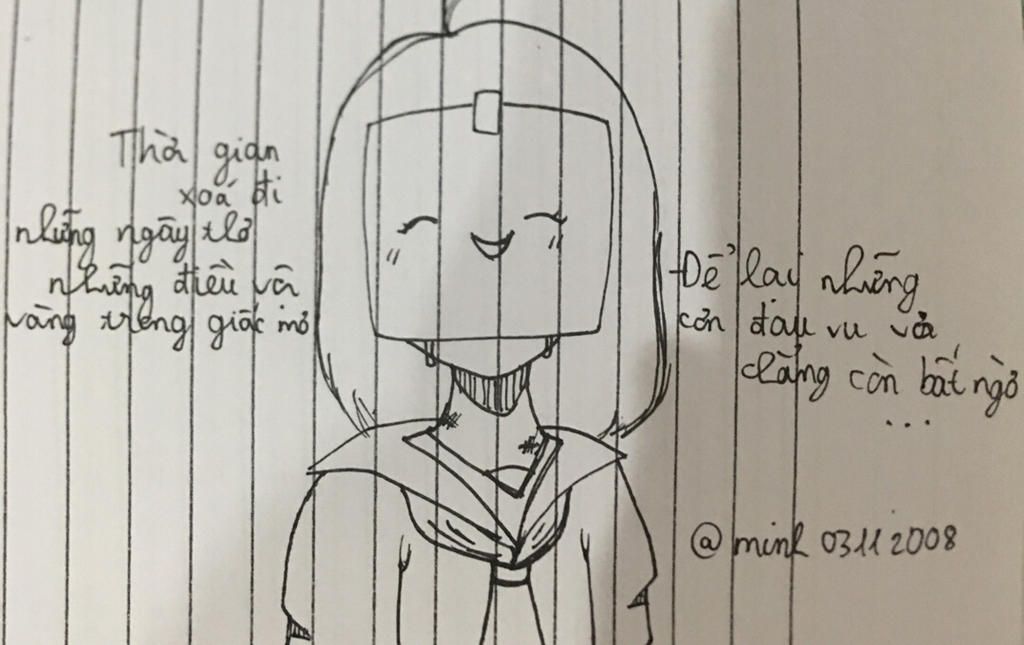 Thời gian
xoá đi
những ngây thơ
những điều vẽ
vàng trong giấc mơ
Để lại những
cơn đau vu vơ
chẳng còn bất ngờ
...
@minh 03112008